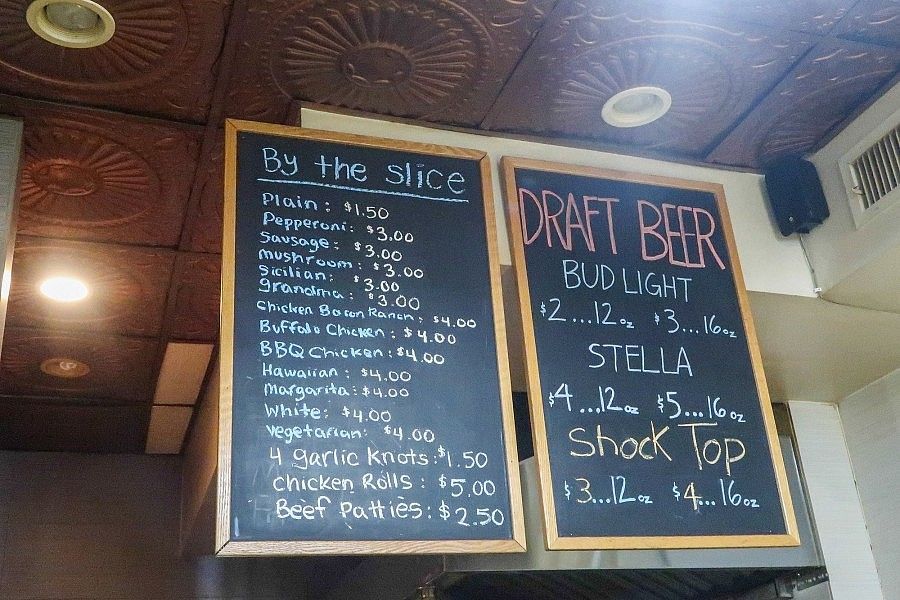 By the slice
Plain: $1.50
Pepperoni: $3.00
Sausage: $3.00
mushroom: $3.00
Sicilian: $3.00
grandma: $3.00
Chicken Bacon Ranch: $4.00
Buffalo Chicken: $4.00
BBQ Chicken: $4.00
Hawaiian: $4.00
margarita: $4.00
White: $4.00
vegetarian: $4.00
4 garlic Knots: $1.50
chicken Rolls: $5.00
Beef Patties: $2.50
DRAFT BEER
BUD LIGHT
$2...12oz $3...16oz
STELLA
$4...12oz $5...16oz
Shock Top
$3...12oz $4...16oz